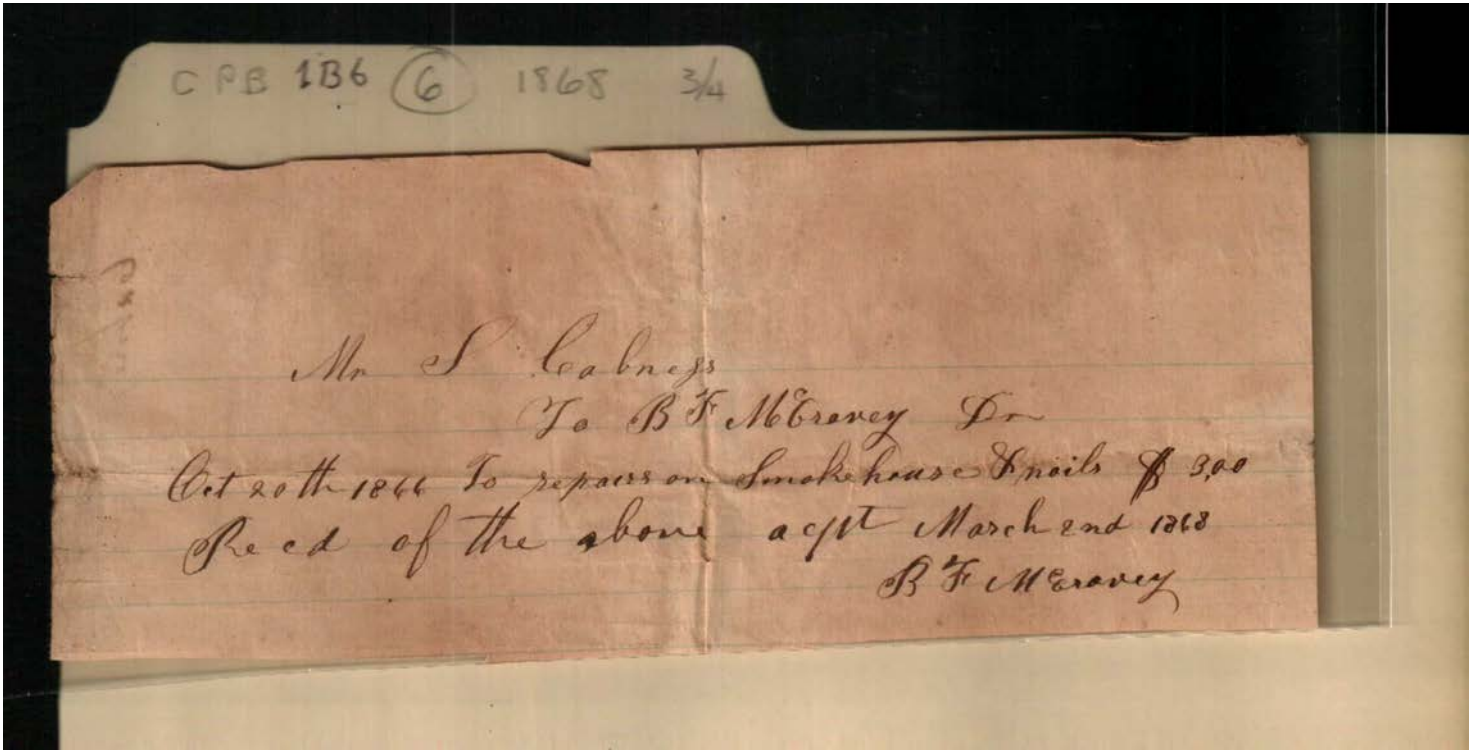 CPB 1B6 6 1868 3/4
Mr S Cabness
To B F McCravey Dr
Oct 20th 1866 To repairs on Smokehouse & nails $ 3,00
Recd of the above acpt March 2nd 1868
B F McCravey